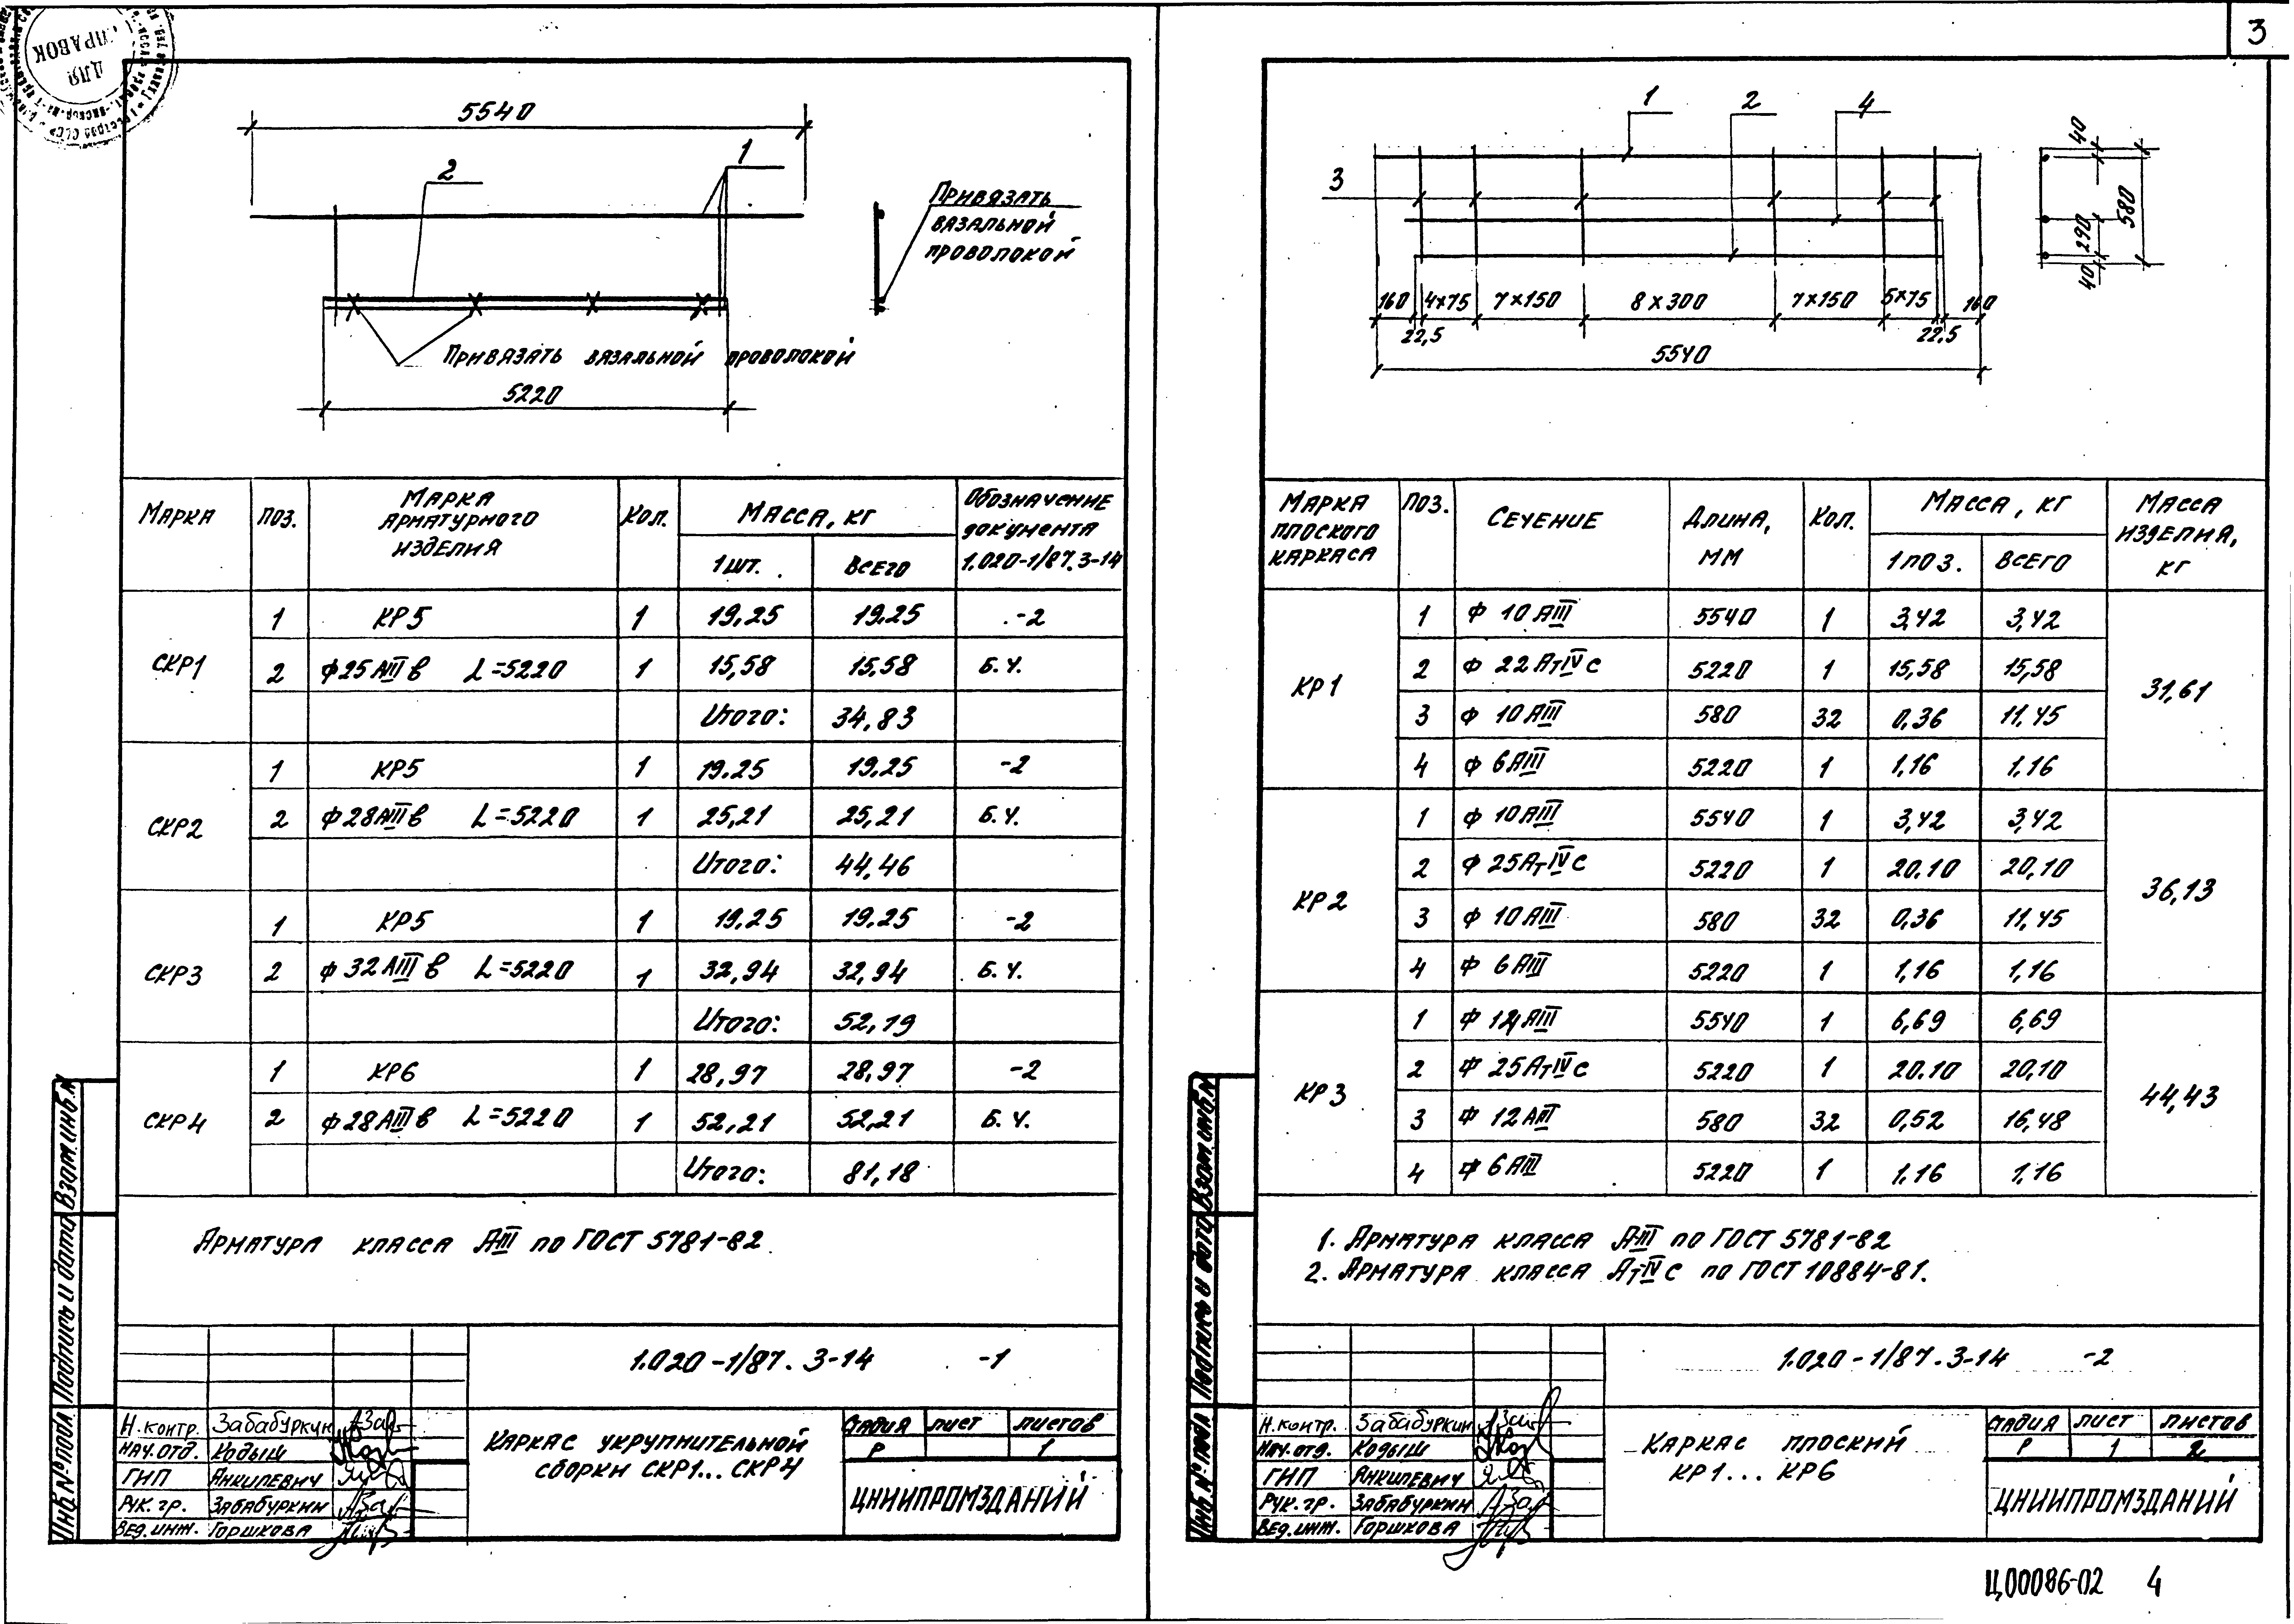 3
ДЛЯ
СПРАВОК
5540
2
1
Привязать
вязальной
проволокой
Привязать вязальной проволокой
5220
Марка
Поз.
Марка арматурного изделия
Кол.
Масса, кг
1 шт.
Всего
Обозначение документа 1.020-1/87.3-14
СКР1
1 КР5 1 19,25 19,25 -2
2 Ф25АIIIв L=5220 1 15,58 15,58 Б.Ч.
Итого: 34,83
СКР2
1 КР5 1 19,25 19,25 -2
2 Ф28АIIIв L=5220 1 25,21 25,21 Б.Ч.
Итого: 44,46
СКР3
1 КР5 1 19,25 19,25 -2
2 Ф32АIIIв L=5220 1 32,94 32,94 Б.Ч.
Итого: 52,19
СКР4
1 КР6 1 28,97 28,97 -2
2 Ф28АIIIв L=5220 1 52,21 52,21 Б.Ч.
Итого: 81,18
Арматура класса АIII по ГОСТ 5781-82
Взам.инв.№
Подпись и дата
Инв.№ подл
1.020-1/87.3-14 -1
Н.контр. Забабуркин
Нач.отд. Кодыш
ГИП Анкилевич
Рук.гр. Забабуркин
Вед.инж. Горшкова
Каркас укрупнительной
сборки СКР1... СКР4
Стадия Лист Листов
Р 1
ЦНИИПРОМЗДАНИЙ
1 2 4
3
160 4×75 7×150 8×300 7×150 5×75 160
22,5 22,5
5540
40
290
580
40
Марка плоского каркаса
Поз.
Сечение
Длина, мм
Кол.
Масса, кг
1 поз.
Всего
Масса изделия, кг
КР1
1 Ф 10АIII 5540 1 3,42 3,42
2 Ф 22АтIVс 5220 1 15,58 15,58
3 Ф 10АIII 580 32 0,36 11,45
4 Ф 6АIII 5220 1 1,16 1,16
31,61
КР2
1 Ф 10АIII 5540 1 3,42 3,42
2 Ф 25АтIVс 5220 1 20,10 20,10
3 Ф 10АIII 580 32 0,36 11,45
4 Ф 6АIII 5220 1 1,16 1,16
36,13
КР3
1 Ф 14АIII 5540 1 6,69 6,69
2 Ф 25АтIVс 5220 1 20,10 20,10
3 Ф 12АIII 580 32 0,52 16,48
4 Ф 6АIII 5220 1 1,16 1,16
44,43
1. Арматура класса АIII по ГОСТ 5781-82
2. Арматура класса АтIVс по ГОСТ 10884-81.
Взам.инв.№
Подпись и дата
Инв.№ подл
1.020-1/87.3-14 -2
Н.контр. Забабуркин
Нач.отд. Кодыш
ГИП Анкилевич
Рук.гр. Забабуркин
Вед.инж. Горшкова
Каркас плоский
КР1... КР6
Стадия Лист Листов
Р 1 2
ЦНИИПРОМЗДАНИЙ
Ц00086-02 4